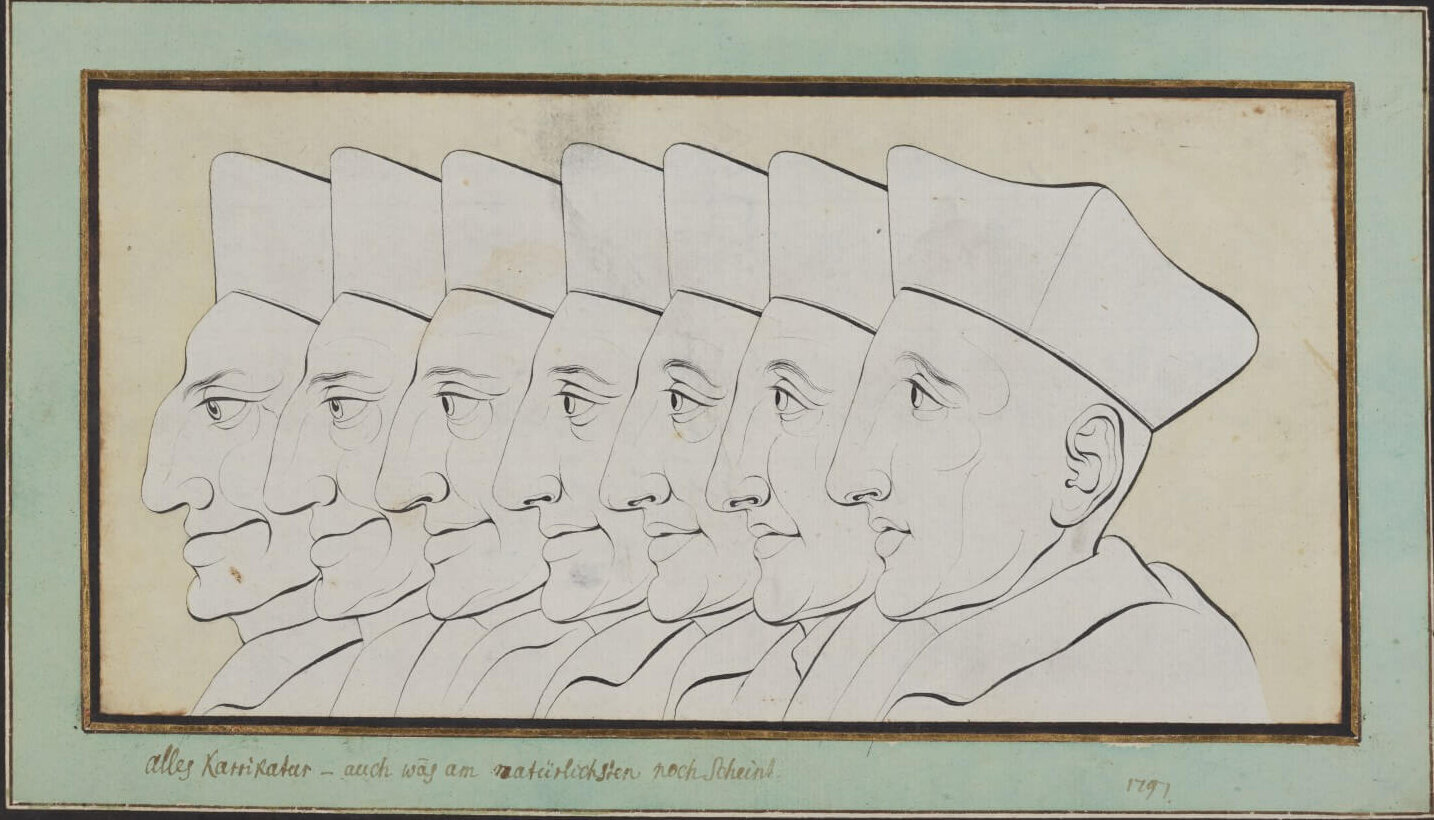 alles Karrikatur – auch was am natürlichsten noch Scheint.
1797